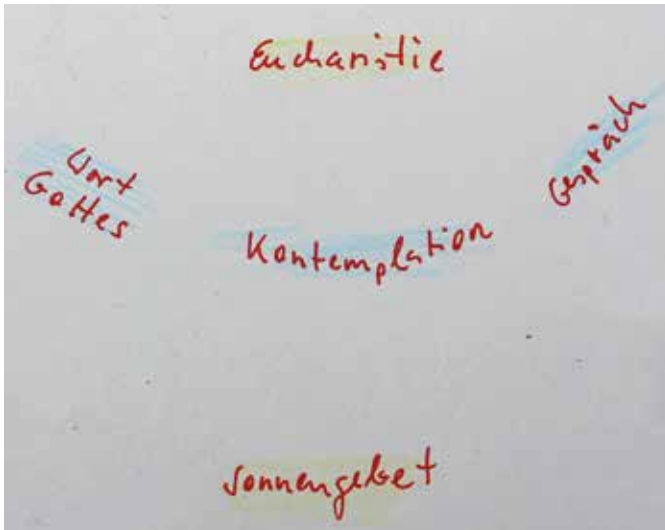 Eucharistie
Wort
Gottes
Gespräch
Kontemplation
Sonnengebet